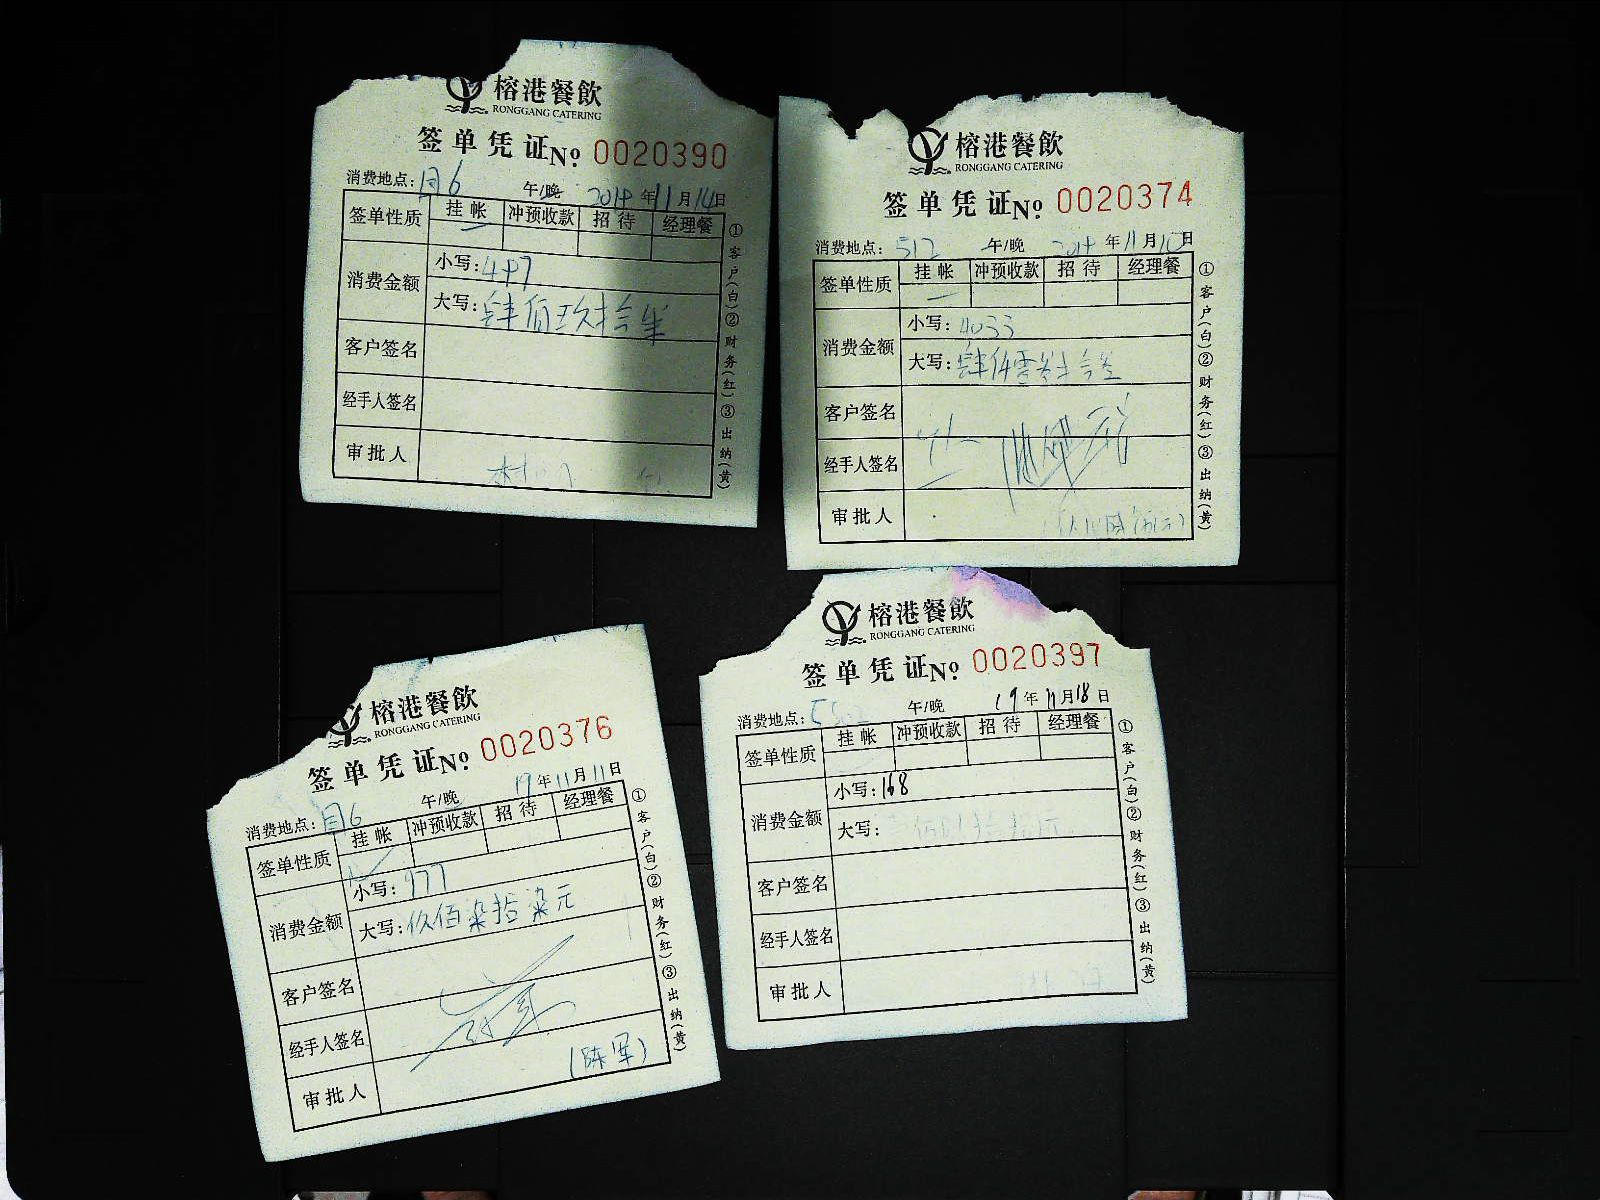 榕港餐飲
RONGGANG CATERING
签单凭证 № 0020390
消费地点: 午/晚 年11月14日
签单性质 挂帐 冲预收款 招待 经理餐
消费金额 小写:497
大写:肆佰玖拾柒
客户签名
经手人签名
审批人
①客户(白)②财务(红)③出纳(黄)
榕港餐飲
RONGGANG CATERING
签单凭证 № 0020374
消费地点: 512 午/晚 年11月10日
签单性质 挂帐 冲预收款 招待 经理餐
消费金额 小写:4033
大写:肆仟零叁拾叁
客户签名
经手人签名
审批人
①客户(白)②财务(红)③出纳(黄)
榕港餐飲
RONGGANG CATERING
签单凭证 № 0020376
消费地点: 午/晚 19年11月11日
签单性质 挂帐 冲预收款 招待 经理餐
消费金额 小写:977
大写:玖佰柒拾柒元
客户签名
经手人签名
(陈军)
审批人
①客户(白)②财务(红)③出纳(黄)
榕港餐飲
RONGGANG CATERING
签单凭证 № 0020397
消费地点: 午/晚 19年11月18日
签单性质 挂帐 冲预收款 招待 经理餐
消费金额 小写:168
大写:
客户签名
经手人签名
审批人
①客户(白)②财务(红)③出纳(黄)